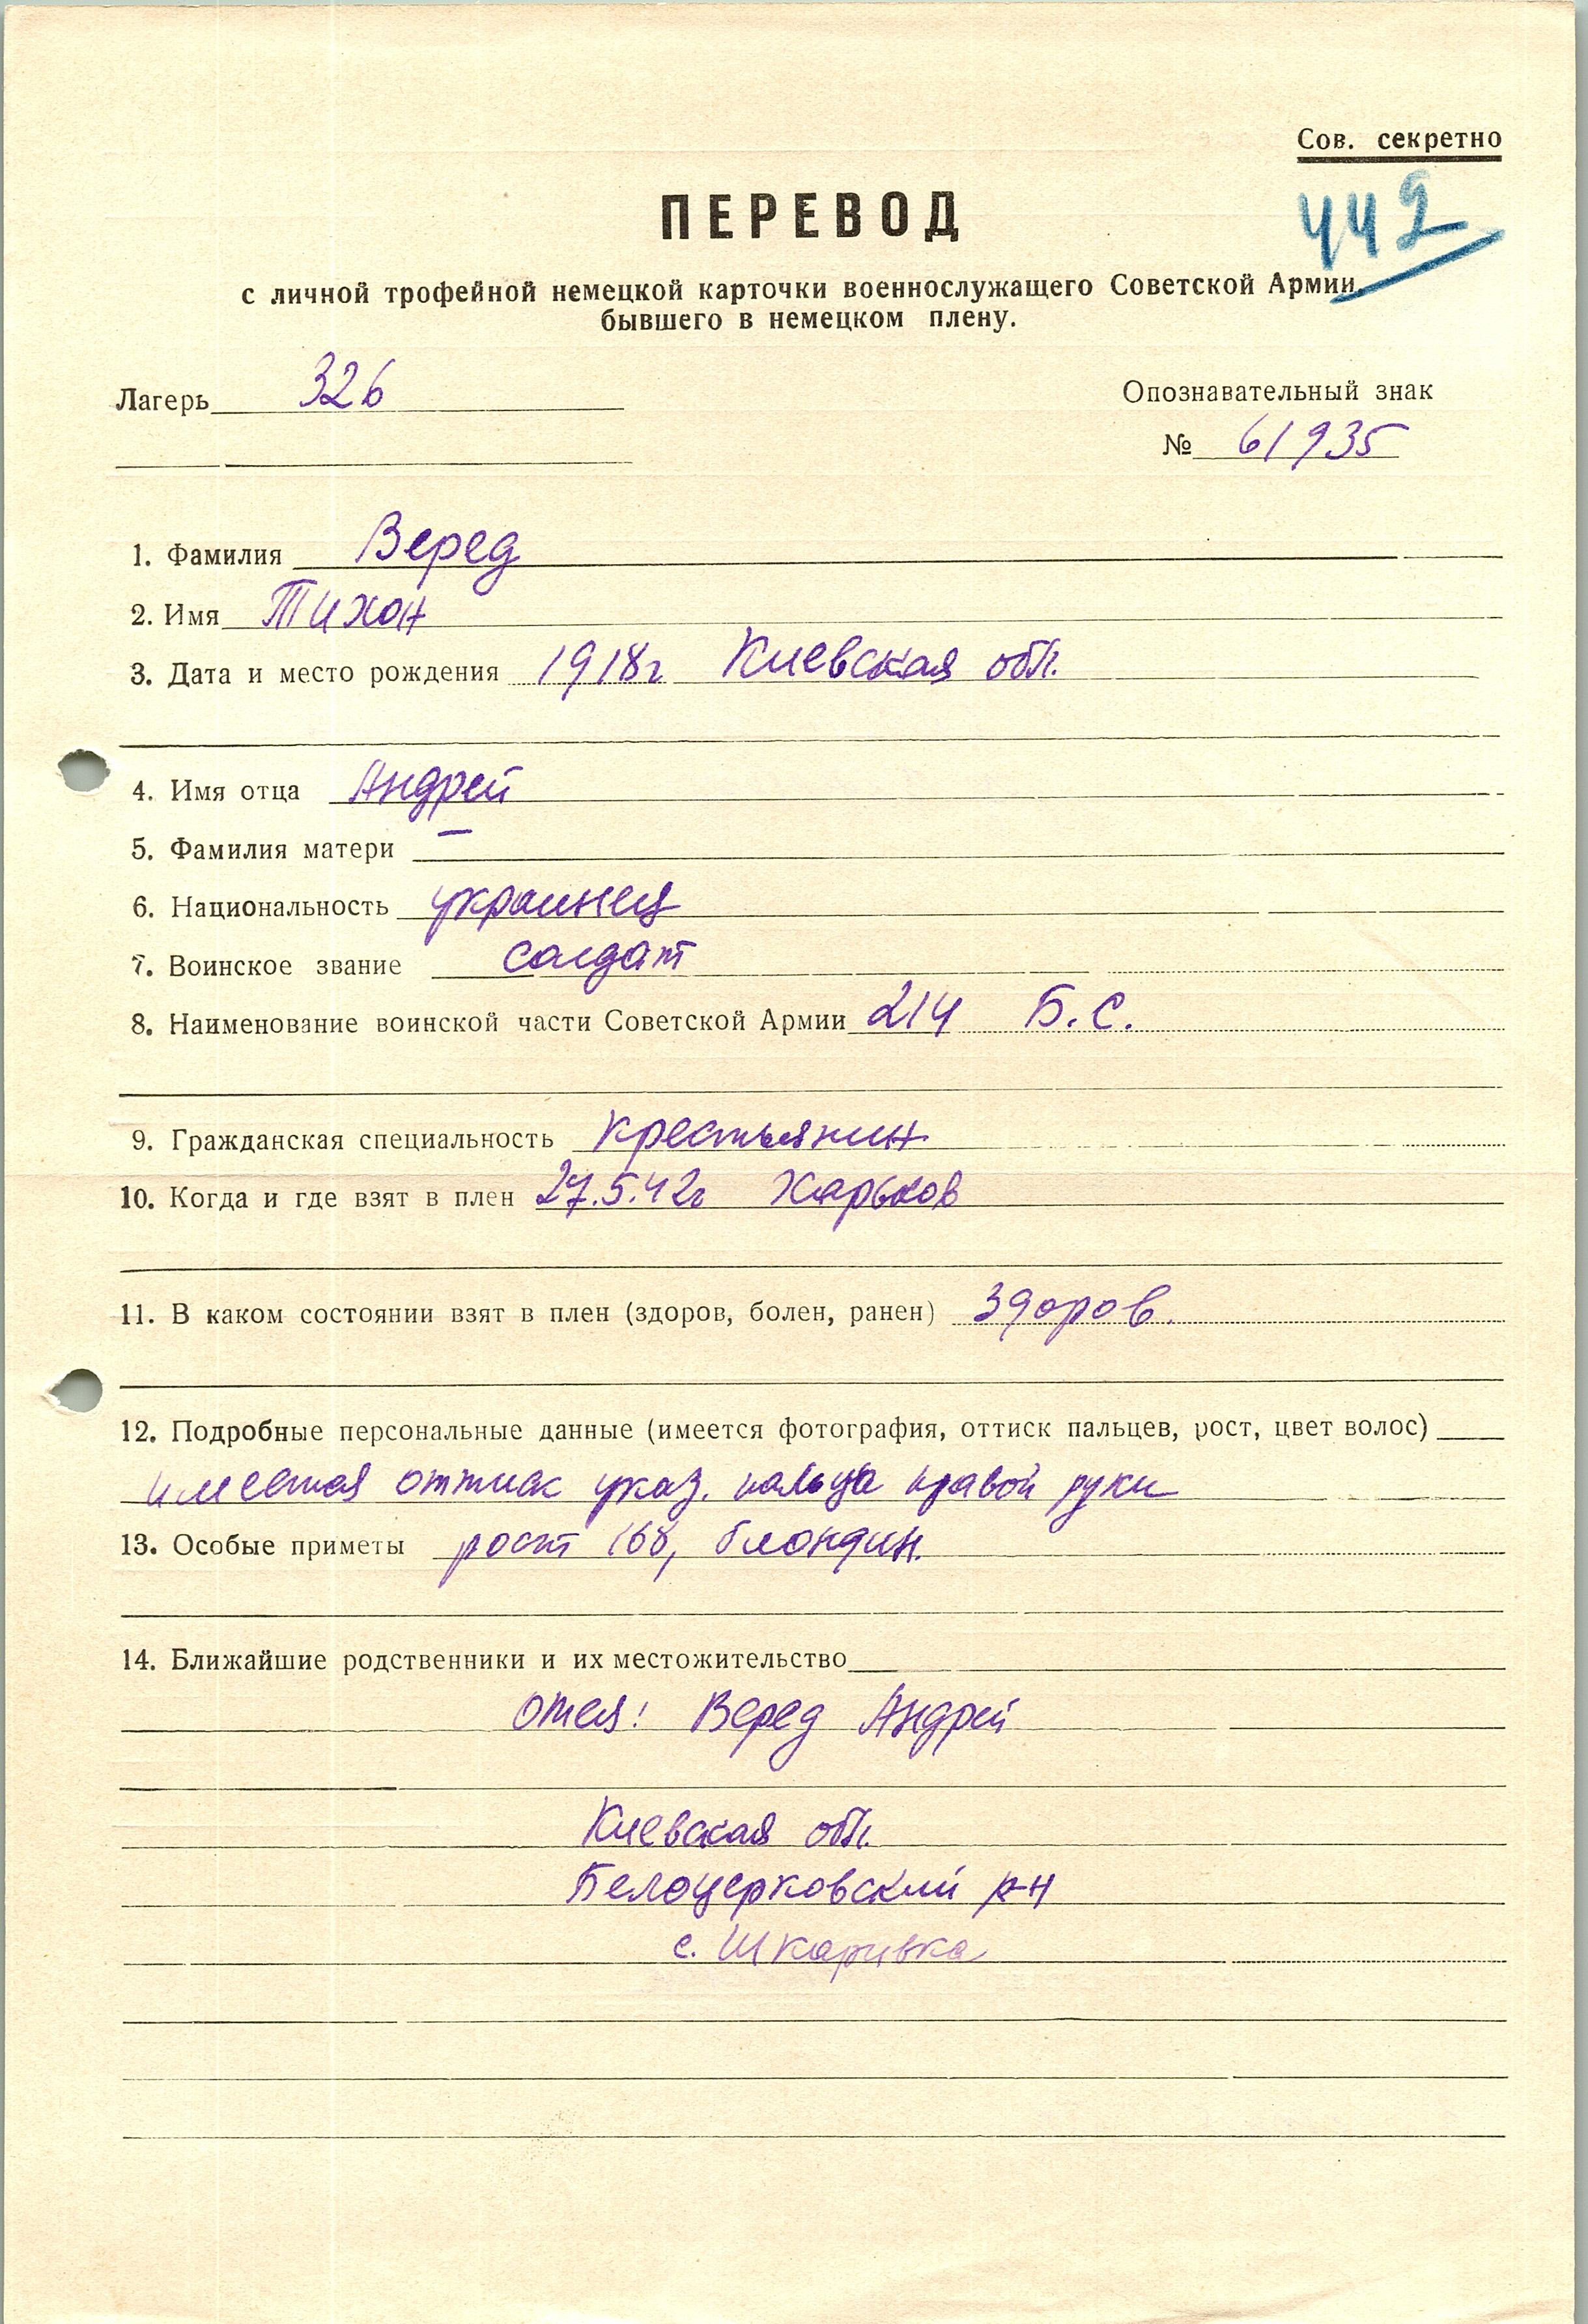 Сов. секретно
442
ПЕРЕВОД
с личной трофейной немецкой карточки военнослужащего Советской Армии,
бывшего в немецком плену.
Лагерь 326
Опознавательный знак
№ 61935
1. Фамилия Веред
2. Имя Тихон
3. Дата и место рождения 1918г Киевская обл.
4. Имя отца Андрей
5. Фамилия матери —
6. Национальность украинец
7. Воинское звание солдат
8. Наименование воинской части Советской Армии 214 Б.С.
9. Гражданская специальность крестьянин
10. Когда и где взят в плен 27.5.42г Харьков
11. В каком состоянии взят в плен (здоров, болен, ранен) здоров.
12. Подробные персональные данные (имеется фотография, оттиск пальцев, рост, цвет волос)
имеется оттиск указ. пальца правой руки
13. Особые приметы рост 168, блондин.
14. Ближайшие родственники и их местожительство
отец: Веред Андрей
Киевская обл.
Белоцерковский р-н
с. Шкаривка